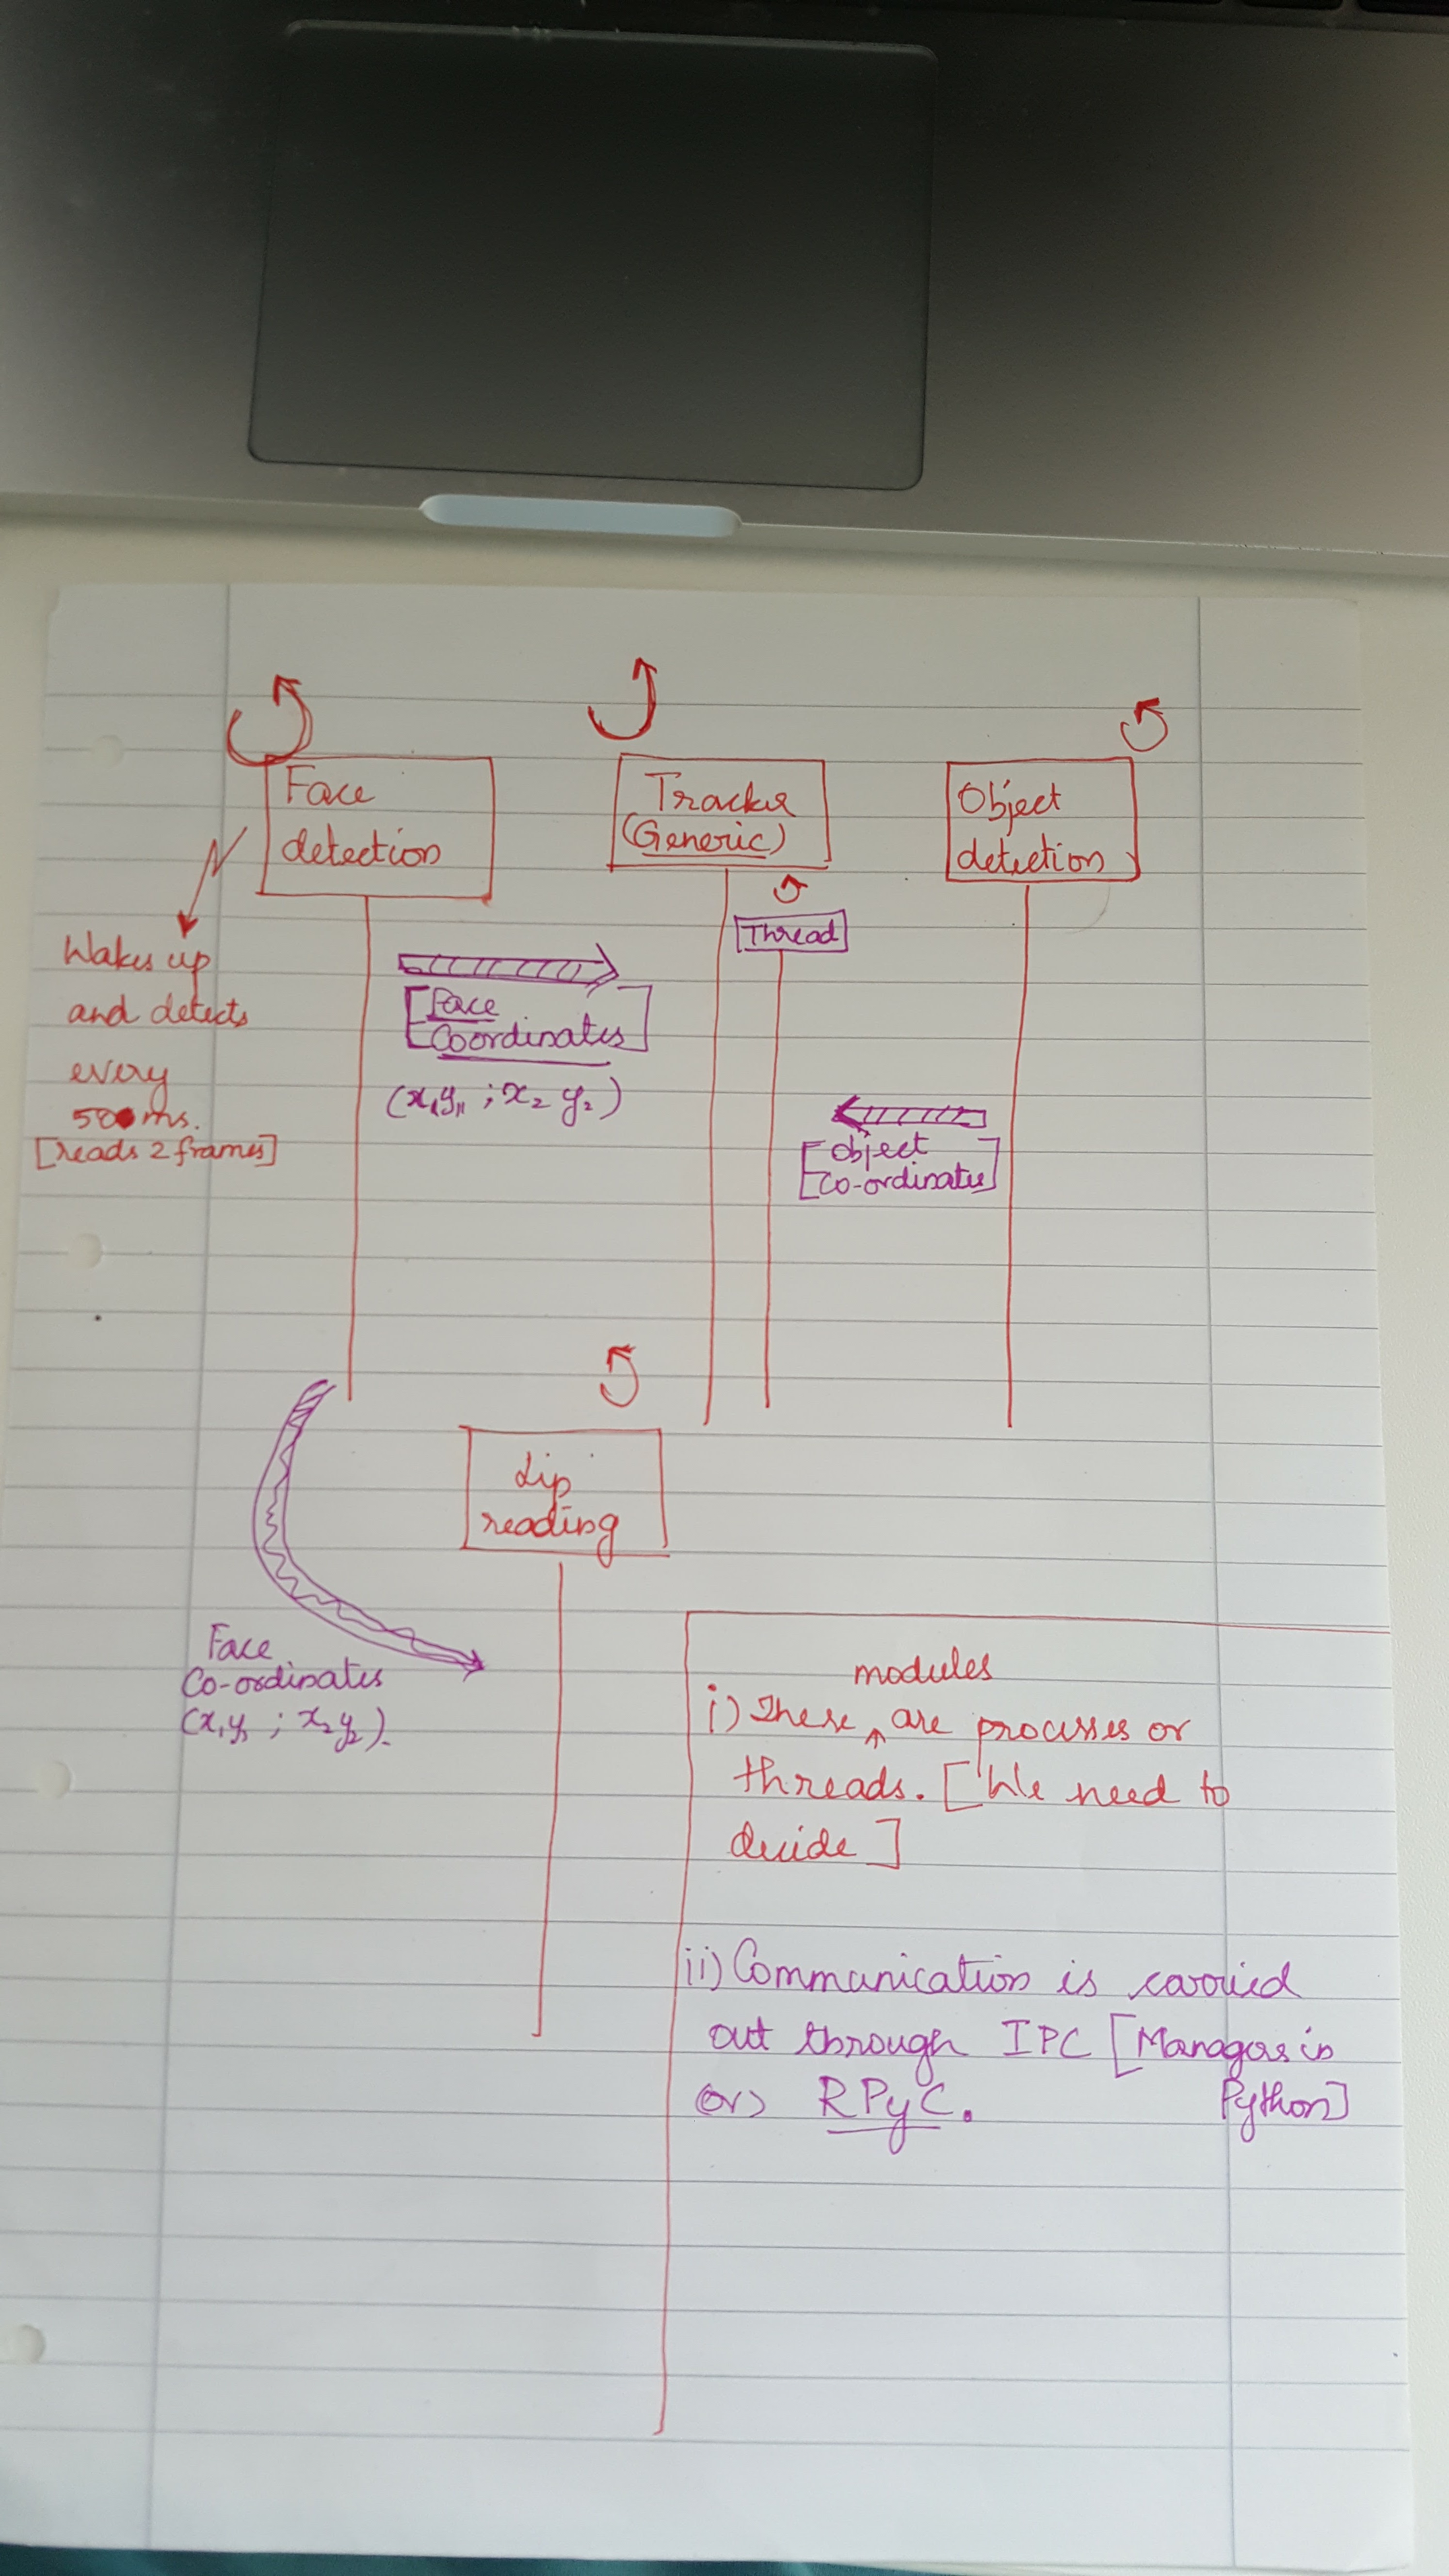 Face
detection
Tracker
(Generic)
Object
detection
Thread
Wakes up
and detects
every
500ms.
[reads 2 frames]
[Face
Coordinates]
(x1y1 ; x2 y2)
[Object
Co-ordinates]
Lip
reading
Face
Co-ordinates
(x1y1 ; x2y2).
modules
i) These ^ are processes or
threads. [We need to
decide]
ii) Communication is carried
out through IPC [Managers in
Python]
(or) RPyC.